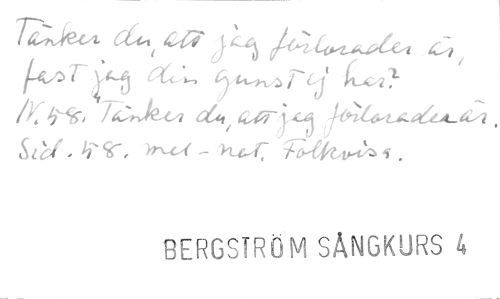 Tänker du, att jag förlorader är,
fast jag din gunst ej har?
N. 58. "Tänker du, att jag förlorader är.
Sid. 58. mel-not. Folkvisa.
BERGSTRÖM SÅNGKURS 4